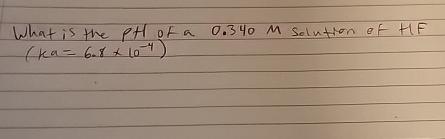 What is the pH of a 0.340 M solution of HF
(ka = 6.8 x 10⁻⁴)